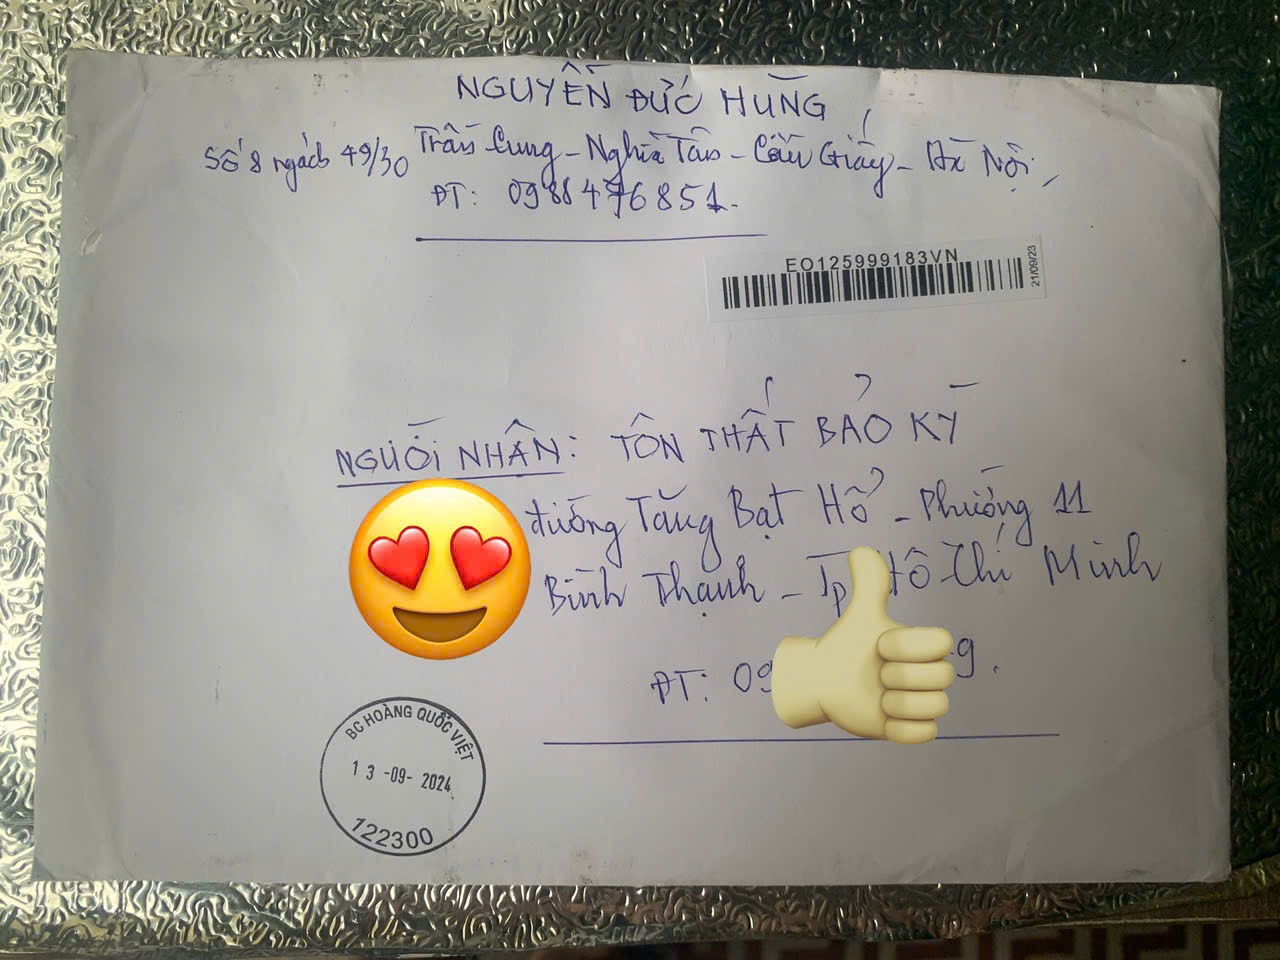 NGUYỄN ĐỨC HÙNG
Số 8 ngách 49/30 Trần Cung - Nghĩa Tân - Cầu Giấy - Hà Nội
ĐT: 0988476851.
EO125999183VN
21/09/23
NGƯỜI NHẬN: TÔN THẤT BẢO KỲ
đường Tăng Bạt Hổ - Phường 11
Bình Thạnh - Tp Hồ Chí Minh
ĐT: 09 9.
BC HOÀNG QUỐC VIỆT
13 -09- 2024
122300